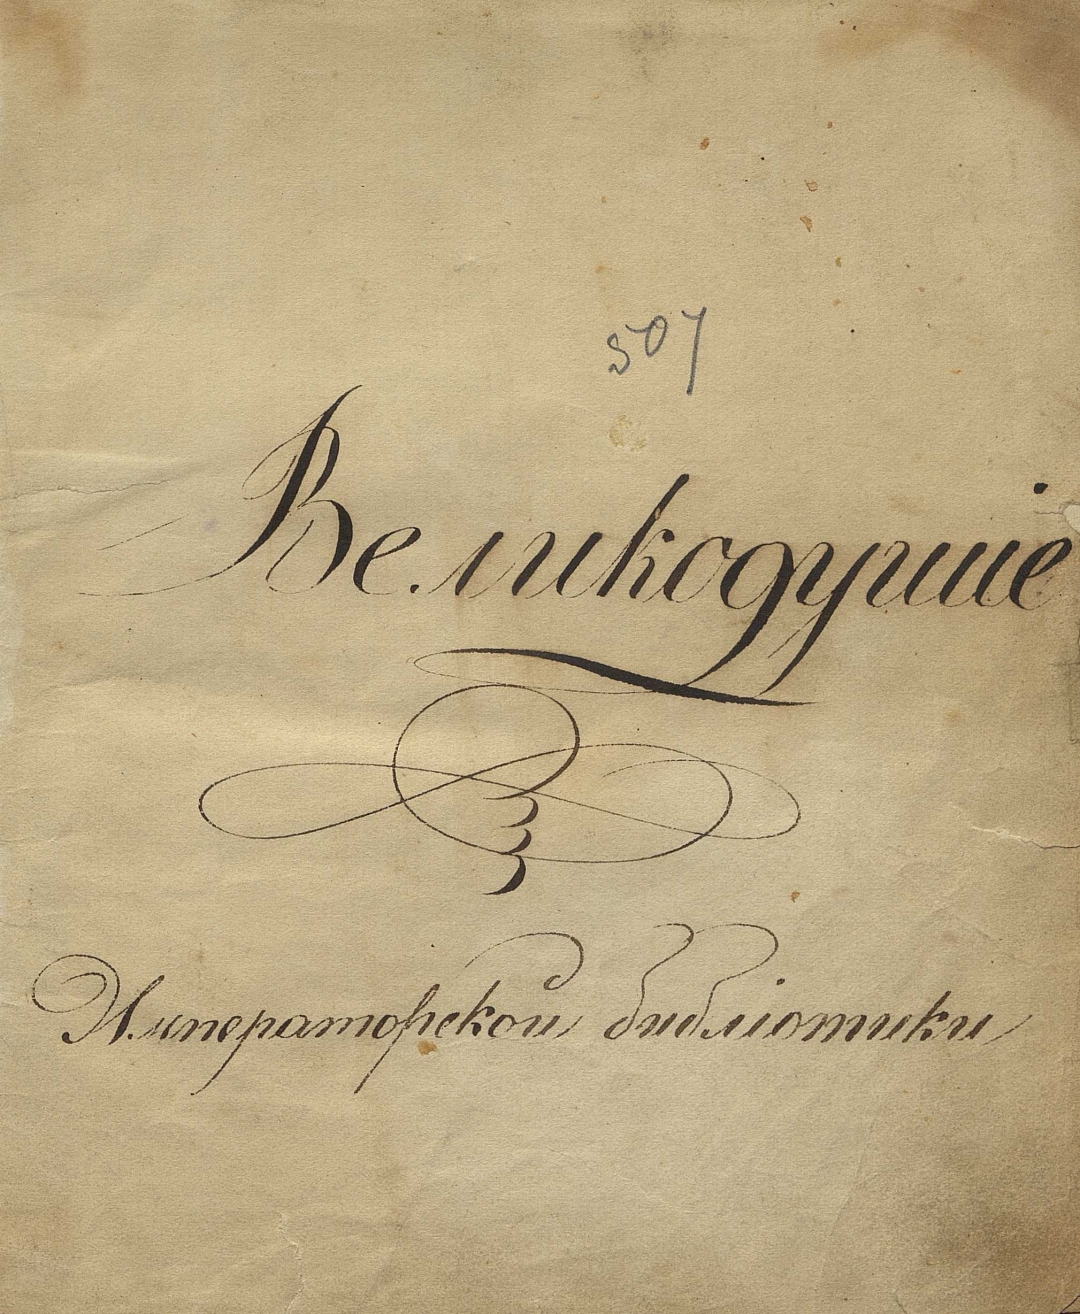 507
Великодушіе
Императорской библіотики